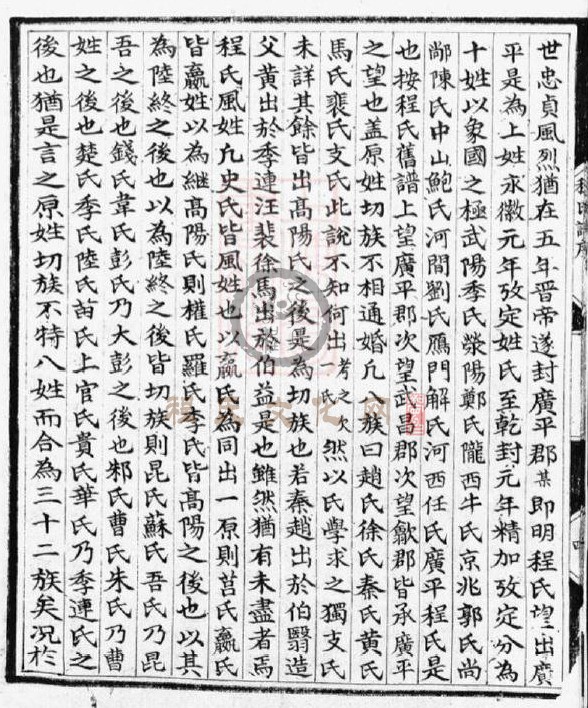 世忠貞風烈猶在五年晋帝遂封廣平郡某即明程氏望出廣
平是為上姓永徽元年攷定姓氏至乾封元年精加攷定分為
十姓以象國之極武陽李氏滎陽鄭氏隴西牛氏京兆郭氏尚
鄁陳氏中山鮑氏河間劉氏鴈門解氏河西任氏廣平程氏是
也按程氏舊譜上望廣平郡次望武昌郡次望歙郡皆承廣平
之望也盖原姓切族不相通婚凢八族曰趙氏徐氏秦氏黄氏
馬氏裴氏支氏此說不知何出考之次氏然以氏學求之獨支氏
未詳其餘皆出髙陽氏之後是為切族也若秦趙出於伯翳造
父黄出於季連汪裴徐馬出於伯益是也雖然猶有未盡者焉
程氏風姓凢史氏皆風姓也以嬴氏為同出一原則莒氏嬴氏
皆嬴姓以為継髙陽氏則權氏羅氏李氏皆髙陽之後也以其
為陸終之後也以為陸終之後皆切族則昆氏蘇氏吾氏乃昆
吾之後也錢氏韋氏彭氏乃大彭之後也邾氏曹氏朱氏乃曹
姓之後也楚氏季氏陸氏苗氏上官氏賁氏華氏乃季連氏之
後也猶是言之原姓切族不特八姓而合為三十二族矣况於